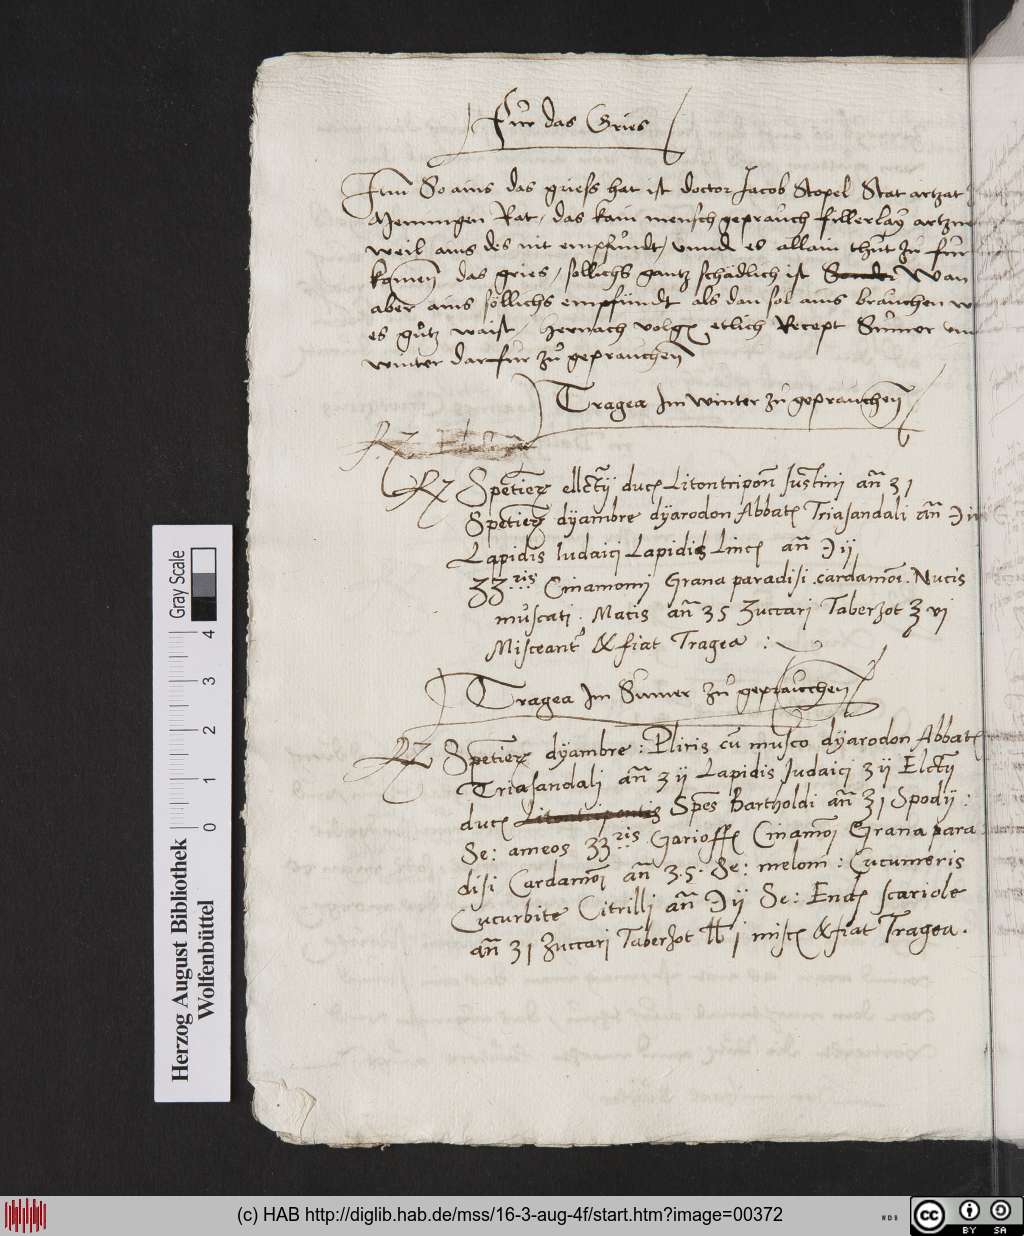 Für das Gries
Itm So ains das griess hat ist doctor Jacob Stopel Stat artzat
Memmingen Rat, das kain mensch geprauch fillerlay artzn
weil ains des nit empfindt, vnnd es allain thut zu für
komen das gries, sollichs gantz schadlich ist Sonder Wan
aber ains söllichs empfindt als dan sol ains brauchen w
es gutz waist, hernach volgt etlich Recept Sumer vn
winter darfur zu geprauchen
Tragea Im winter zu geprauchen
Rz
Rz Spetierz ellctij duc Litontripon Justini an ʒ 1
Spetierz dyambre dyarodon Abbat Triasandali an ℈ i
Lapidis Iudaici Lapidis Linc an ℈ ij
ʒʒris Cinamomi Grana paradisi . cardamo . Nucis
muscati . Macis an ʒ 5 Zuccari Taberzot ʒ vi
Misceant & fiat Tragea :
Tragea Im Sumer zu geprauchen
Rz Spetierz dyambre : Pliris cu musco dyarodon Abbat
Triasandali an ʒ ij Lapidis Judaici ʒ ij Elctij
duc Litontripontis Spes Bartholdi an ʒ 1 Spodij :
Se: ameos ʒʒris Garioff Cinamo Grana para
disi Cardamo an ʒ . 5 . Se: melom : Cucumeris
Cucurbite Citrilli an ℈ ij Se: End scariole
an ʒ 1 Zuccari Taberzot lb 1 misc & fiat Tragea .
Herzog August Bibliothek
Wolfenbüttel
Gray Scale
0 1 2 3 4
(c) HAB http://diglib.hab.de/mss/16-3-aug-4f/start.htm?image=00372
WDB
cc BY SA